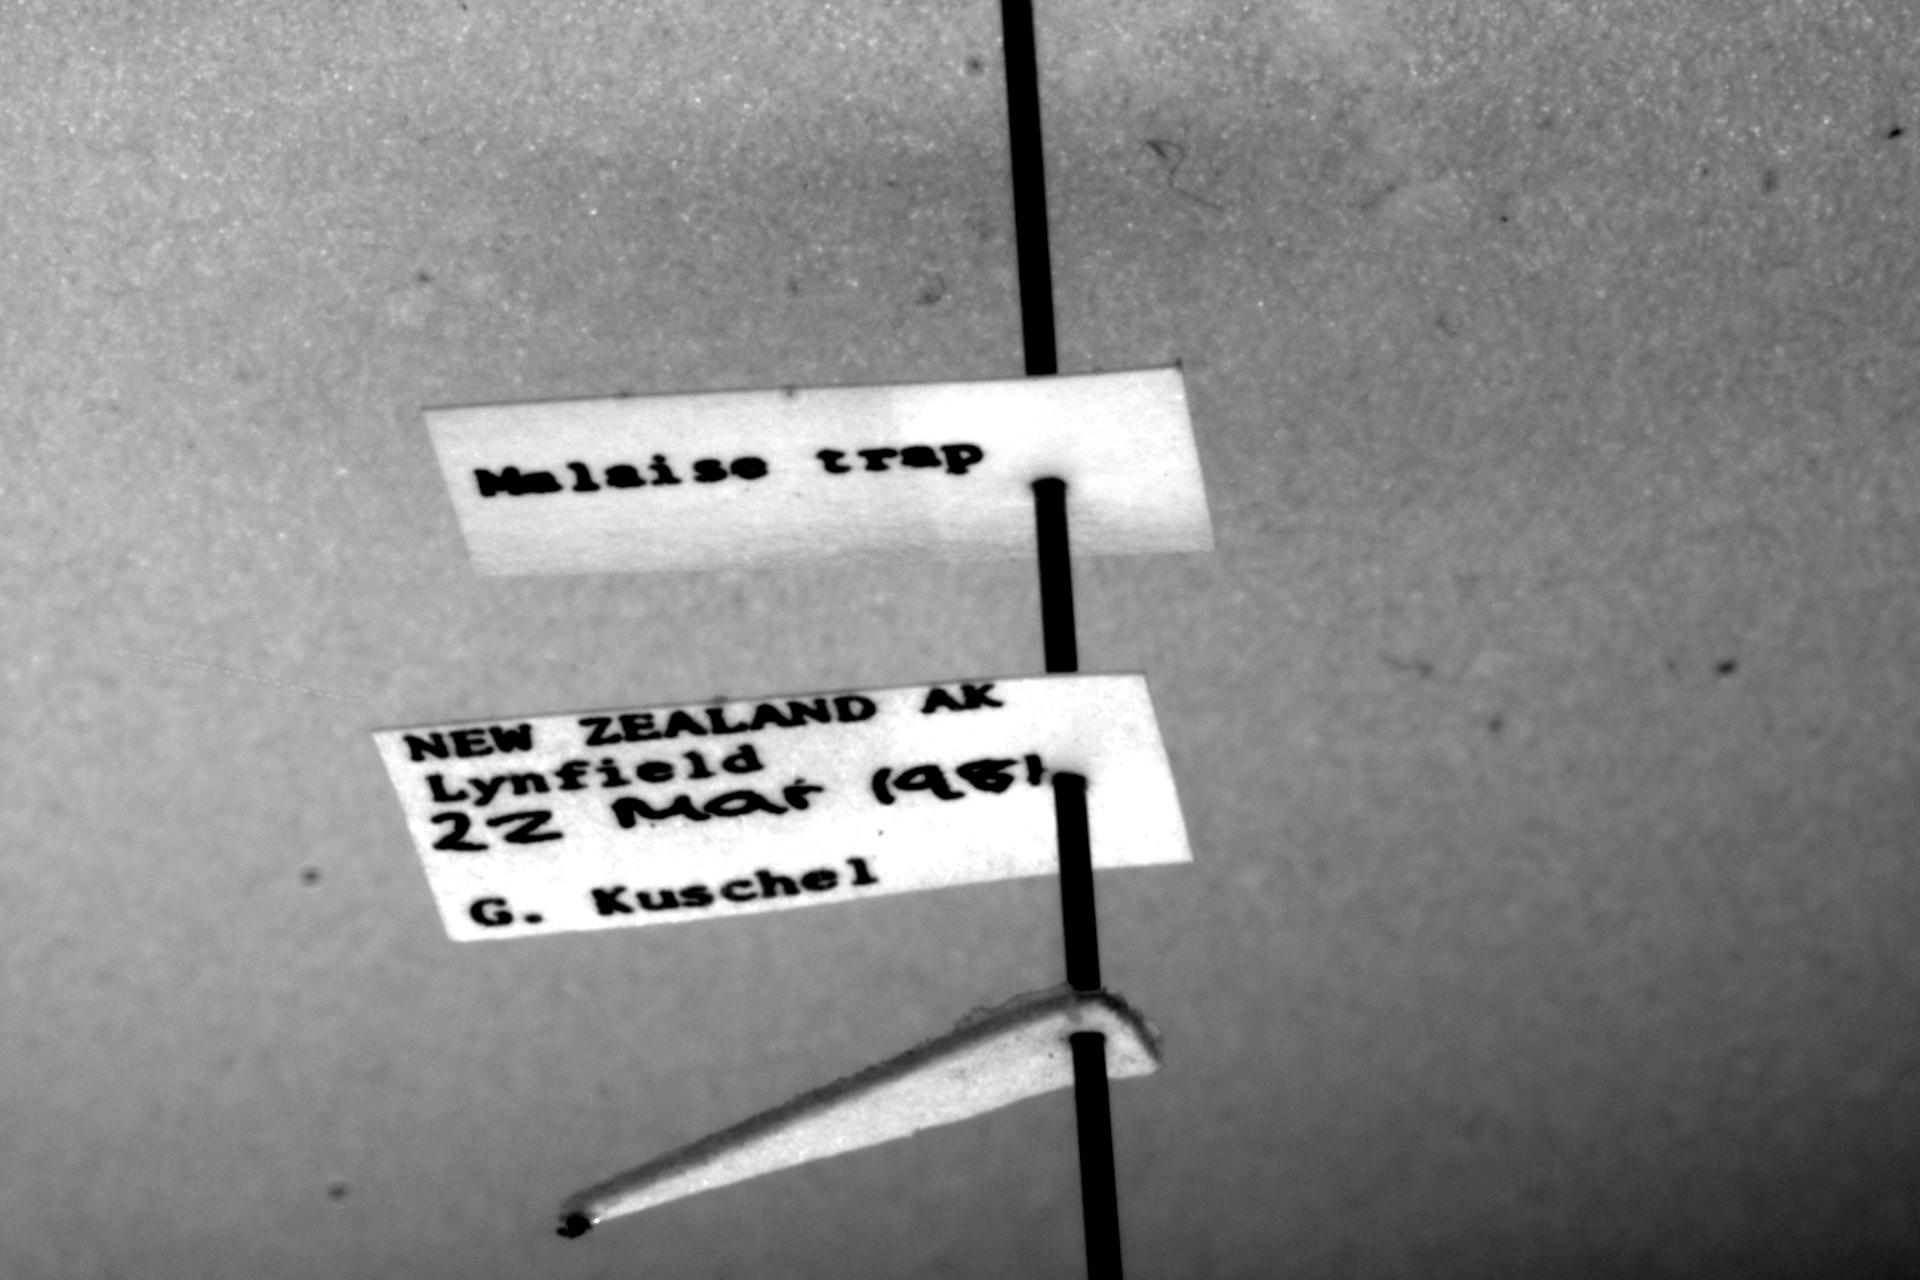 Malaise trap
NEW ZEALAND AK
Lynfield
22 Mar 1981
G. Kuschel